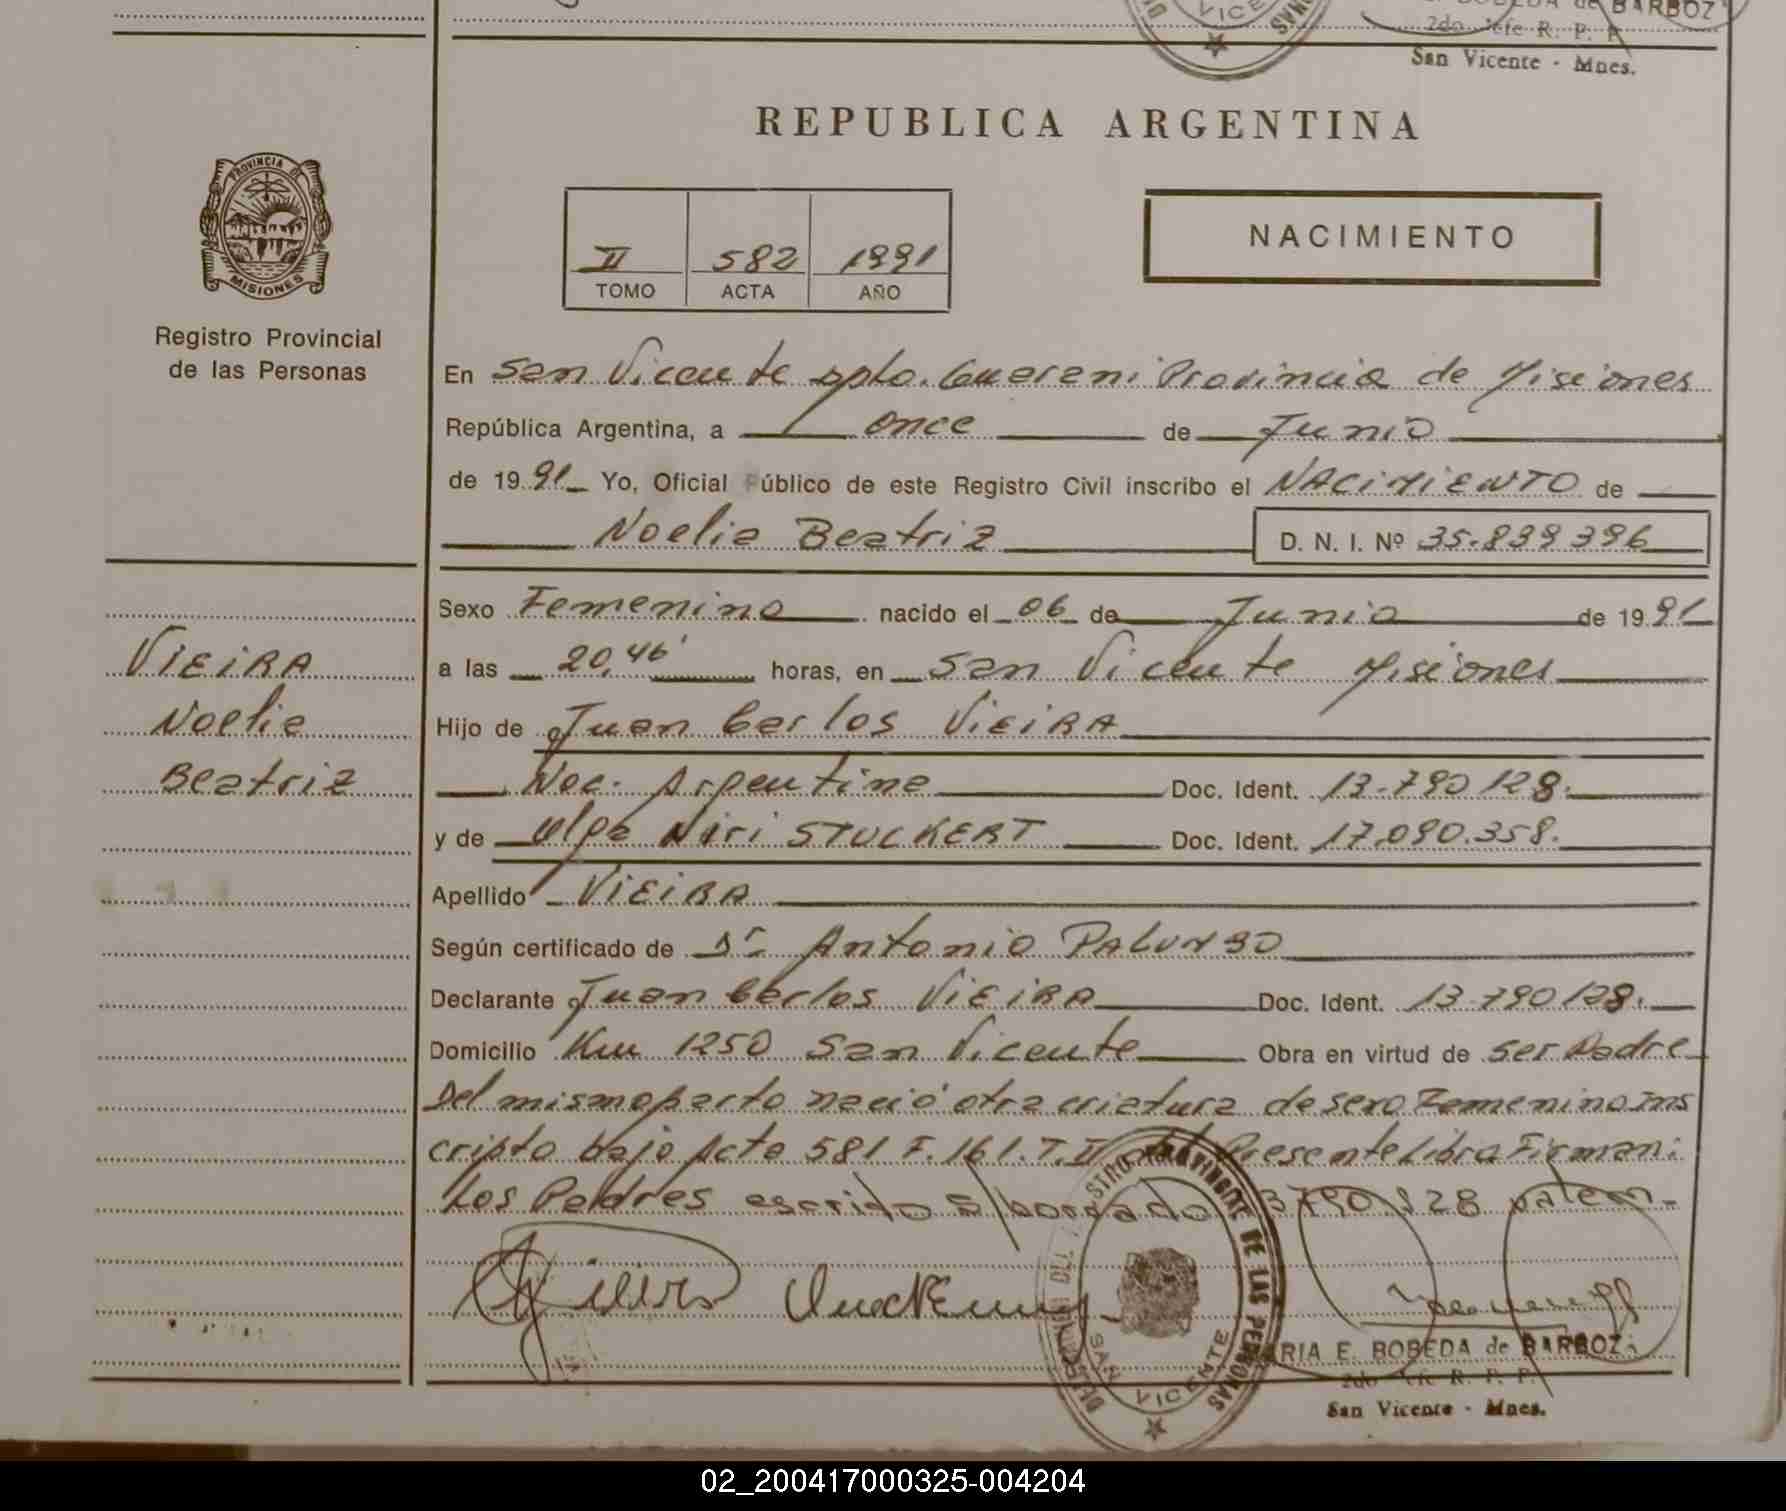 BOBEDA de BARBOZ
2do Jefe R. P. P.
San Vicente - Mnes.
REPUBLICA ARGENTINA
PROVINCIA DE
MISIONES
Registro Provincial
de las Personas
II 582 1991
TOMO ACTA AÑO
NACIMIENTO
En San Vicente Dpto. Guarani Provincia de Misiones
República Argentina, a once de Junio
de 1991 Yo, Oficial Público de este Registro Civil inscribo el NACIMIENTO de
Noelia Beatriz D. N. I. Nº 35.839396
Sexo Femenino nacido el 06 de Junio de 1991
VIEIRA
Noelia
Beatriz
a las 20,46' horas, en San Vicente Misiones
Hijo de Juan Carlos VIEIRA
Nac. Argentina Doc. Ident. 13.790128.
y de Olga Miri STUCKERT Doc. Ident. 17.090.358.
Apellido VIEIRA
Según certificado de Dr. Antonio PALUMBO
Declarante Juan Carlos VIEIRA Doc. Ident. 13.790128.
Domicilio Km 1250 San Vicente Obra en virtud de ser Padre
Del mismo parto nació otra criatura de sexo Femenino Ins
cripto bajo Acta 581 F. 161. T. II Presente Libro Firman:
Los Padres escrido s/borrado 3790128 valem.
DEL REGISTRO PROVINCIAL DE LAS PERSONAS
SAN VICENTE
MARIA E. BOBEDA de BARBOZ
2do Jefe R. P. P.
San Vicente - Mnes.
02_200417000325-004204